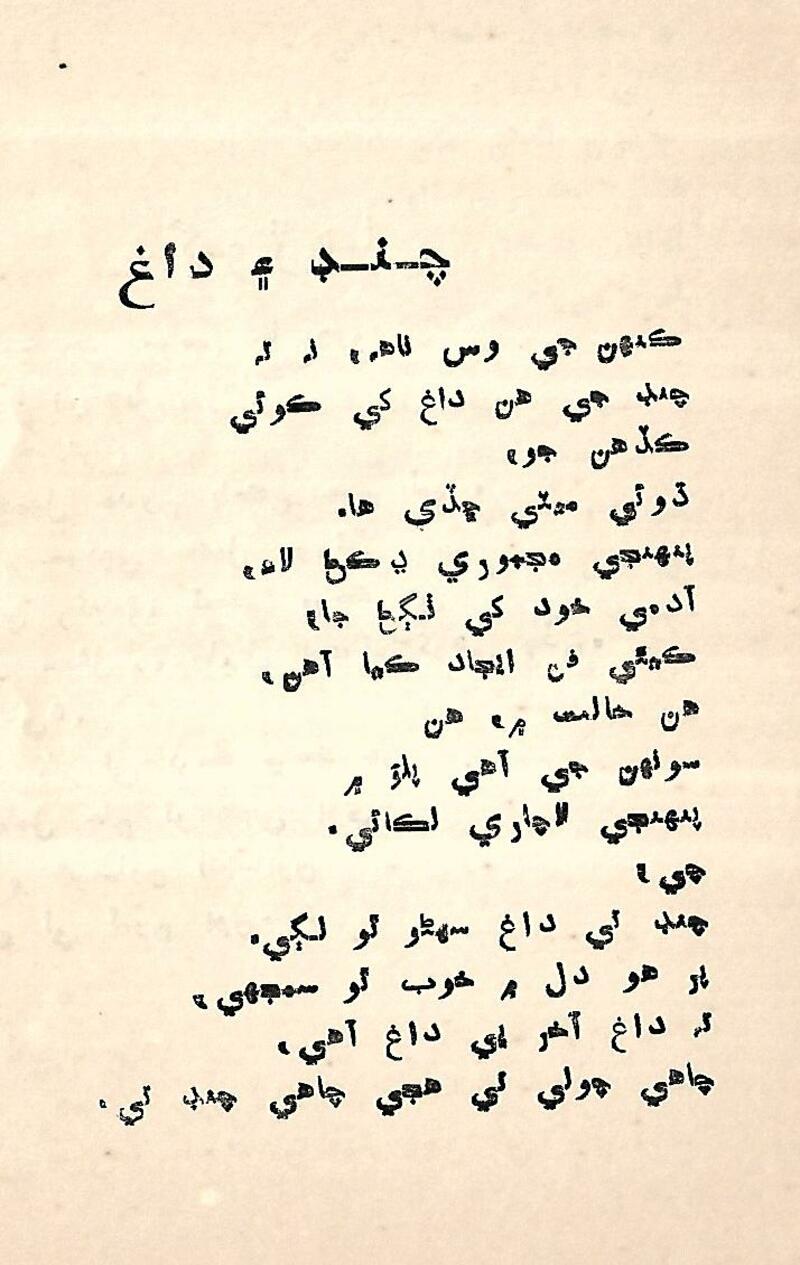 چنڊ ۽ داغ
ڪنهن جي وس ناهه، نه ته
چنڊ جي هن داغ کي ڪوئي
ڪڏهن جو،
ڌوئي ميٽي ڇڏي ها.
پنهنجي مجبوري ڍڪڻ لاءِ،
آدمي خود کي ٺڳڻ جا،
ڪيئي فن ايجاد ڪيا آهن،
هن حالت ۾، هن
سونهن جي آهي پلؤ ۾
پنهنجي لاچاري لڪائي.
چي؛
چنڊ تي داغ سهڻو ٿو لڳي.
پر هو دل ۾ خوب ٿو سمجهي،
ته داغ آخر ڀي داغ آهي،
چاهي چولي تي هجي چاهي چنڊ تي.